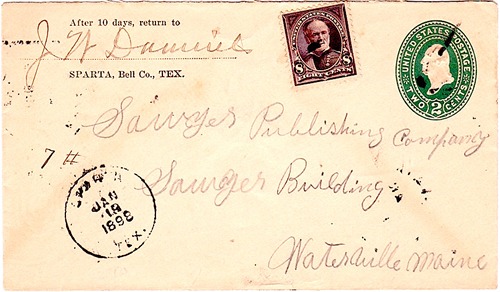 After 10 days, return to
J W Daniel
SPARTA, Bell Co., TEX.
8 8
EIGHT CENTS
UNITED STATES POSTAGE
TWO 2 CENTS
Sawyer Publishing Company
7 #
Sawyer Building
SPARTA
JAN
18
1898
TEX.
Waterville Maine